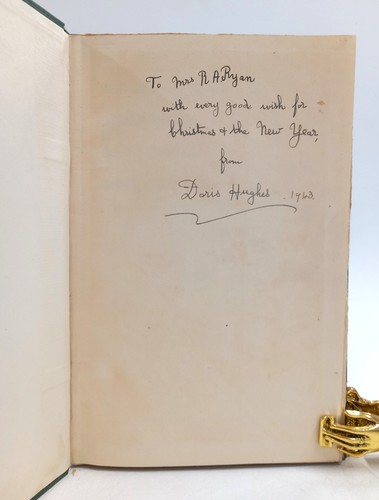 To Mrs R A Ryan
with every good wish for
Christmas & the New Year,
from
Doris Hughes. 1943.